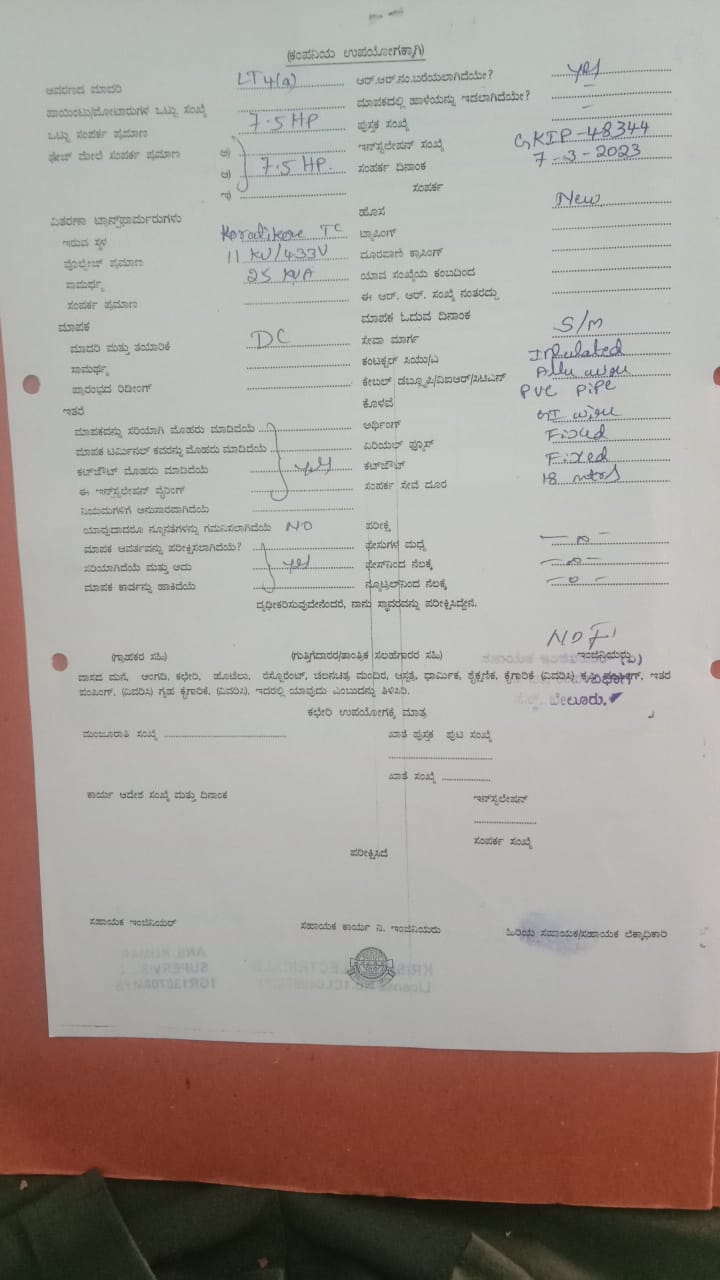 (ಕಂಪನಿಯ ಉಪಯೋಗಕ್ಕಾಗಿ)
ಆವರಣದ ಮಾದರಿ LT4(a) ಆರ್.ಆರ್.ನಂ.ಬರೆಯಲಾಗಿದೆಯೇ? yes
ಪಾಯಿಂಟು/ಮೋಟಾರುಗಳ ಒಟ್ಟು ಸಂಖ್ಯೆ ಮಾಪಕದಲ್ಲಿ ಹಾಳೆಯನ್ನು ಇಡಲಾಗಿದೆಯೇ? –
ಒಟ್ಟು ಸಂಪರ್ಕ ಪ್ರಮಾಣ 7.5 HP ಪುಸ್ತಕ ಸಂಖ್ಯೆ –
ಫೇಜ್ ಮೇಲೆ ಸಂಪರ್ಕ ಪ್ರಮಾಣ ಅ) ಇನ್‌ಸ್ಟಲೇಷನ್ ಸಂಖ್ಯೆ GKIP-48344
ಆ) 7.5 HP. ಸಂಪರ್ಕ ದಿನಾಂಕ 7-3-2023
ಇ) ಸಂಪರ್ಕ
ವಿತರಣಾ ಟ್ರಾನ್ಸ್‌ಫಾರ್ಮರುಗಳು ಹೊಸ New
ಇರುವ ಸ್ಥಳ TC ಟ್ಯಾಪಿಂಗ್
ವೊಲ್ಟೇಜ್ ಪ್ರಮಾಣ 11 KV/433V ದೂರವಾಣಿ ಕ್ರಾಸಿಂಗ್
ಸಾಮರ್ಥ್ಯ 25 KVA ಯಾವ ಸಂಖ್ಯೆಯ ಕಂಬದಿಂದ
ಸಂಪರ್ಕ ಪ್ರಮಾಣ ಈ ಆರ್. ಆರ್. ಸಂಖ್ಯೆ ನಂತರದ್ದು
ಮಾಪಕ ಮಾಪಕ ಓದುವ ದಿನಾಂಕ
ಮಾದರಿ ಮತ್ತು ತಯಾರಿಕೆ DC ಸೇವಾ ಮಾರ್ಗ S/M
ಸಾಮರ್ಥ್ಯ ಕಂಟಕ್ಟರ್ ಸಿಯು/ಎ Insulated
ಪ್ರಾರಂಭದ ರಿಡೀಂಗ್ ಕೇಬಲ್ ಡಬ್ಲ್ಯೂಪಿ/ವಿಐಆರ್/ಸಿಟಿಎಸ್ Allu wire
ಇತರೆ ಕೊಳವೆ PVC PIPE
ಮಾಪಕವನ್ನು ಸರಿಯಾಗಿ ಮೊಹರು ಮಾಡಿದೆಯೆ ಅರ್ಥಿಂಗ್ GI wire
ಮಾಪಕ ಟರ್ಮಿನಲ್ ಕವರನ್ನು ಮೊಹರು ಮಾಡಿದೆಯೆ ಏರಿಯಲ್ ಫ್ಯೂಸ್ Fixed
ಕಟ್‌ಔಟ್ ಮೊಹರು ಮಾಡಿದೆಯೆ yes ಕಟ್‌ಔಟ್ Fixed
ಈ ಇನ್‌ಸ್ಟಲೇಷನ್ ವೈರಿಂಗ್ ಸಂಪರ್ಕ ಸೇವೆ ದೂರ 18 mtrs
ನಿಯಮಗಳಿಗೆ ಅನುಸಾರವಾಗಿದೆಯೆ
ಯಾವುದಾದರೂ ನ್ಯೂನತೆಗಳನ್ನು ಗಮನಿಸಲಾಗಿದೆಯೆ NO ಪರೀಕ್ಷೆ
ಮಾಪಕ ಆವರ್ತವನ್ನು ಪರೀಕ್ಷಿಸಲಾಗಿದೆಯೆ? ಫೇಸುಗಳ ಮಧ್ಯೆ – ೧ –
ಸರಿಯಾಗಿದೆಯೆ ಮತ್ತು ಅದು yes ಫೇಸ್‌ನಿಂದ ನೆಲಕ್ಕೆ –0–
ಮಾಪಕ ಕಾರ್ಡನ್ನು ಹಾಕಿದೆಯೆ ನ್ಯೂಟ್ರಲ್‌ನಿಂದ ನೆಲಕ್ಕೆ –0–
ದೃಢೀಕರಿಸುವುದೇನೆಂದರೆ, ನಾನು ಸ್ಥಾವರವನ್ನು ಪರೀಕ್ಷಿಸಿದ್ದೇನೆ.
(ಗ್ರಾಹಕರ ಸಹಿ) (ಗುತ್ತಿಗೆದಾರರ/ತಾಂತ್ರಿಕ ಸಲಹೆಗಾರರ ಸಹಿ) ಇಂಜಿನಿಯರು
ವಾಸದ ಮನೆ, ಅಂಗಡಿ, ಕಛೇರಿ, ಹೊಟೆಲು, ರೆಸ್ಟೊರೆಂಟ್, ಚಲನಚಿತ್ರ ಮಂದಿರ, ಆಸ್ಪತ್ರೆ, ಧಾರ್ಮಿಕ, ಶೈಕ್ಷಣಿಕ, ಕೈಗಾರಿಕೆ (ವಿವರಿಸಿ) ಇತರ
ಪಂಪಿಂಗ್, (ವಿವರಿಸಿ) ಗೃಹ ಕೈಗಾರಿಕೆ, (ವಿವರಿಸಿ), ಇದರಲ್ಲಿ ಯಾವುದು ಎಂಬುದನ್ನು ತಿಳಿಸಿರಿ. ಬೇಲೂರು.
ಕಛೇರಿ ಉಪಯೋಗಕ್ಕೆ ಮಾತ್ರ
ಮಂಜೂರಾತಿ ಸಂಖ್ಯೆ ಖಾತೆ ಪುಸ್ತಕ ಪುಟ ಸಂಖ್ಯೆ
ಖಾತೆ ಸಂಖ್ಯೆ
ಕಾರ್ಯ ಆದೇಶ ಸಂಖ್ಯೆ ಮತ್ತು ದಿನಾಂಕ ಇನ್‌ಸ್ಟಲೇಷನ್
ಸಂಪರ್ಕ ಸಂಖ್ಯೆ
ಪರೀಕ್ಷಿಸಿದೆ
ಸಹಾಯಕ ಇಂಜಿನಿಯರ್ ಸಹಾಯಕ ಕಾರ್ಯ ನಿ. ಇಂಜಿನಿಯರು ಹಿರಿಯ ಸಹಾಯಕ/ಸಹಾಯಕ ಲೆಕ್ಕಾಧಿಕಾರಿ